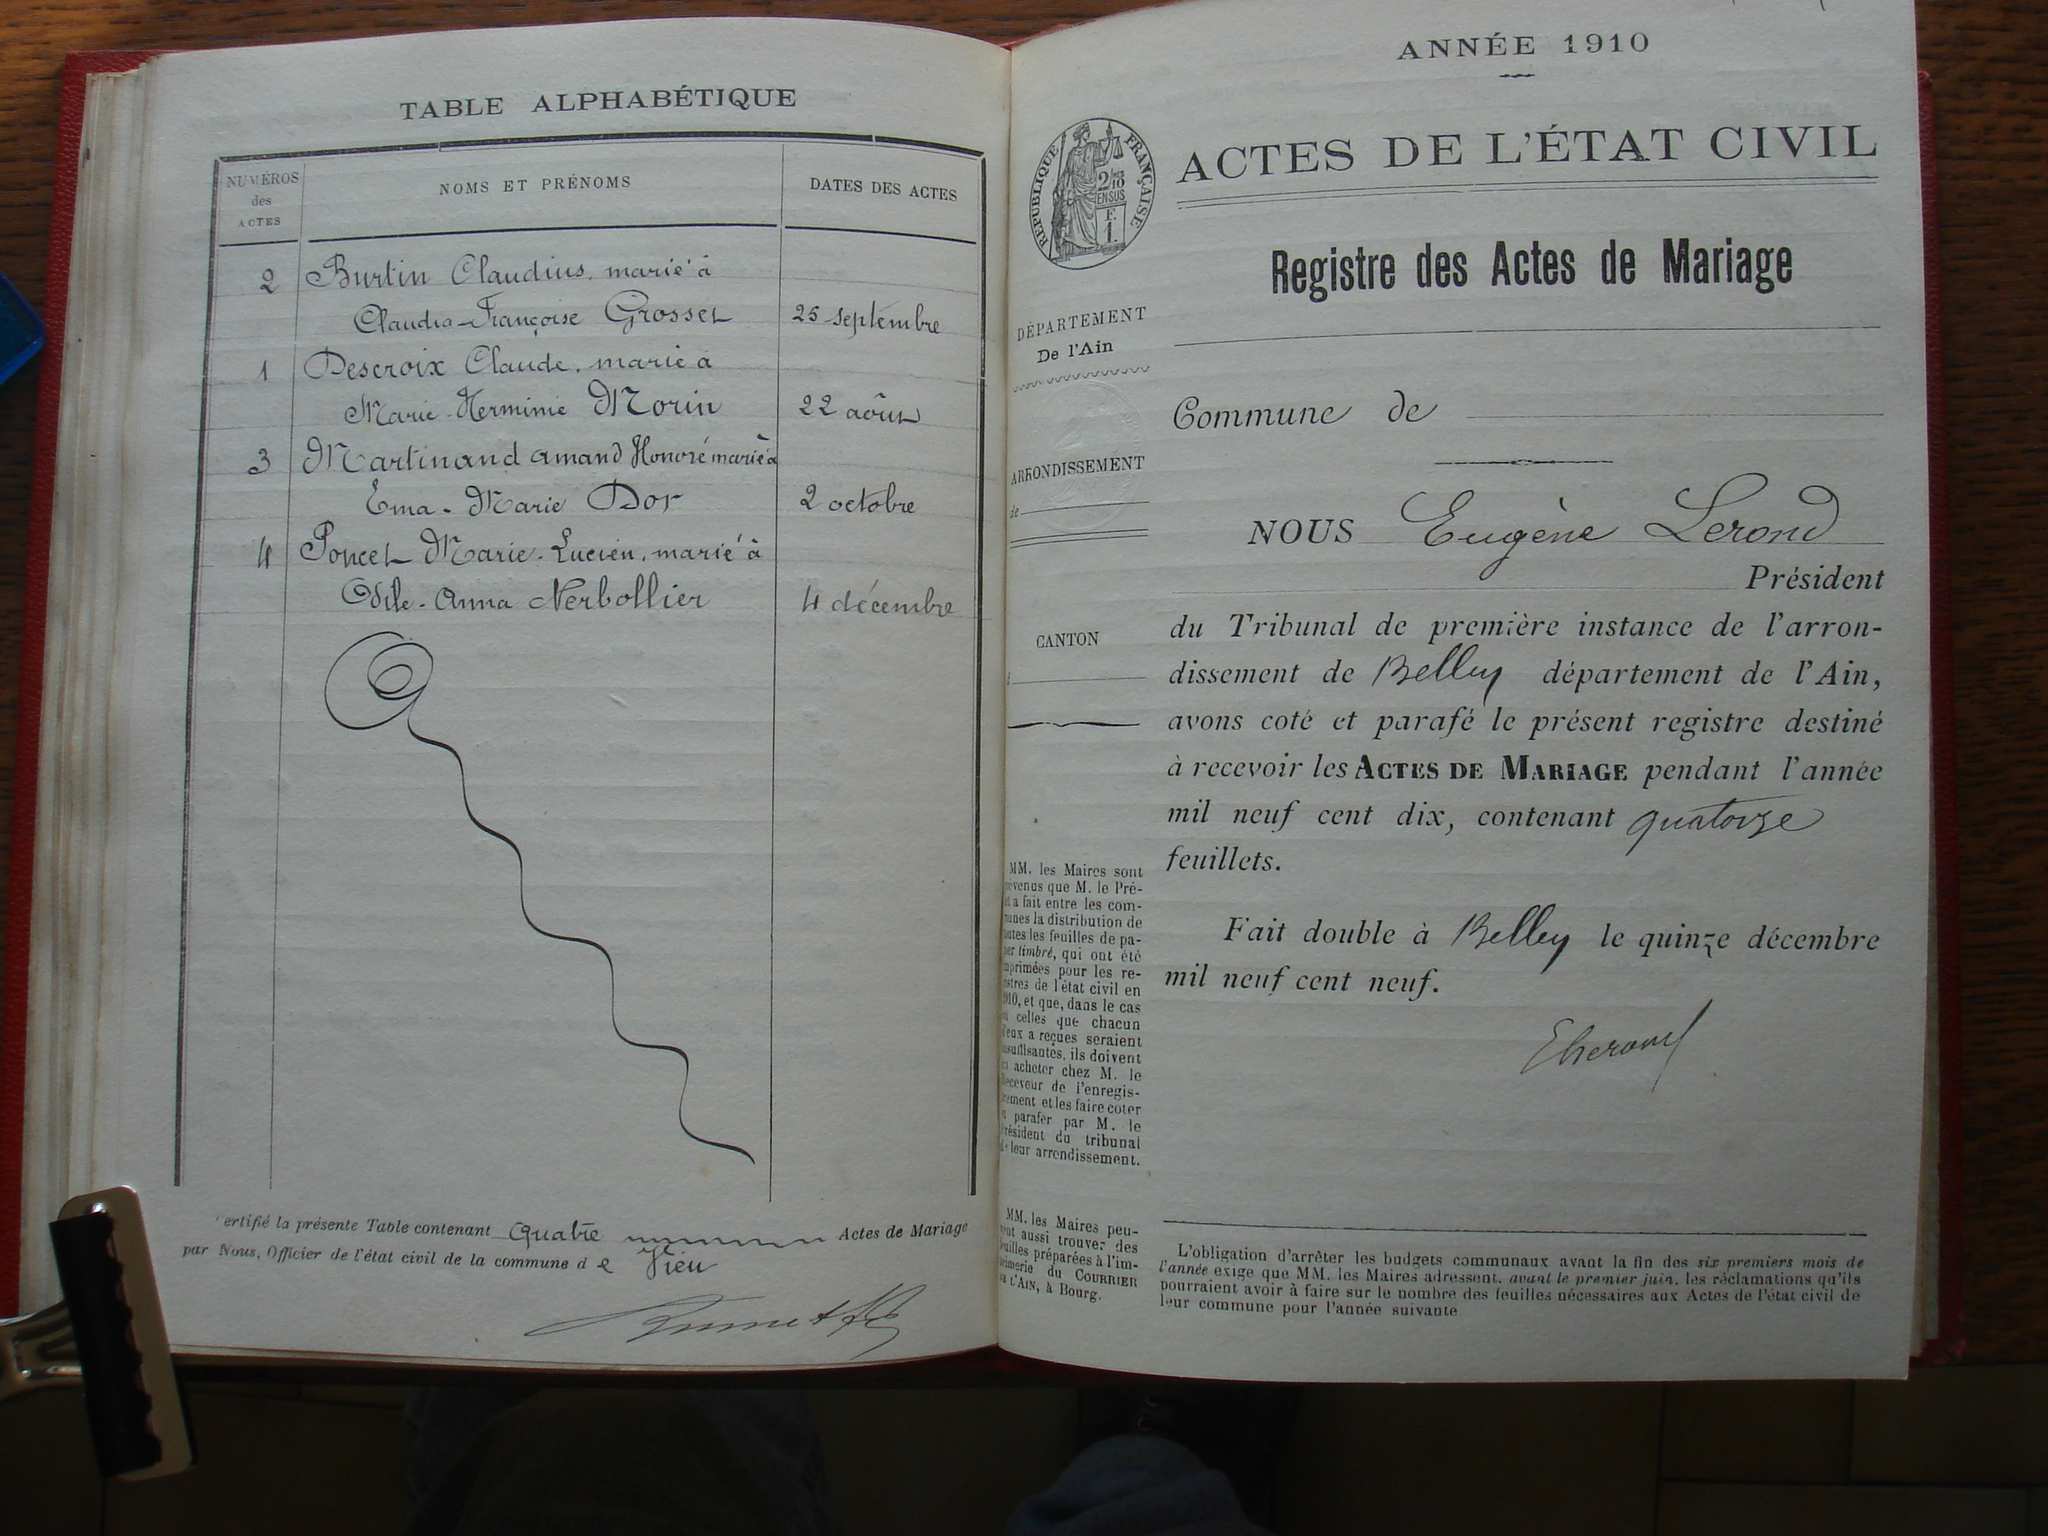 TABLE ALPHABÉTIQUE
NUMÉROS
des
ACTES
NOMS ET PRÉNOMS
DATES DES ACTES
2 Burtin Claudius, marié à
Claudia-Françoise Grosset 25 septembre
1 Descroix Claude, marié à
Marie-Herminie Morin 22 août
3 Martinand Amand Honoré marié à
Ema-Marie Dor 2 octobre
4 Poncet Marie-Lucien, marié à
Odile-Anna Nerbollier 4 décembre
ertifié la présente Table contenant quatre Actes de Mariage
par Nous, Officier de l'état civil de la commune de Vieu
ANNÉE 1910
RÉPUBLIQUE FRANÇAISE
2/10
EN SUS
F.
1.
ACTES DE L'ÉTAT CIVIL
Registre des Actes de Mariage
DÉPARTEMENT
De l'Ain
ARRONDISSEMENT
de
CANTON
Commune de
NOUS Eugène Lerond
Président
du Tribunal de première instance de l'arron-
dissement de Belley département de l'Ain,
avons coté et parafé le présent registre destiné
à recevoir les ACTES DE MARIAGE pendant l'année
mil neuf cent dix, contenant quatorze
feuillets.
Fait double à Belley le quinze décembre
mil neuf cent neuf.
ELerond
MM. les Maires sont
évenus que M. le Pré-
t a fait entre les com-
unes la distribution de
outes les feuilles de pa-
er timbré, qui ont été
mprimées pour les re-
istres de l'état civil en
910, et que, dans le cas
ù celles que chacun
'eux a reçues seraient
nsuffisantes, ils doivent
n acheter chez M. le
Receveur de l'enregis-
rement et les faire coter
t parafer par M. le
résident du tribunal
e leur arrondissement.
MM. les Maires peu-
vent aussi trouver des
euilles préparées à l'im-
rimerie du COURRIER
DE L'AIN, à Bourg.
L'obligation d'arrêter les budgets communaux avant la fin des six premiers mois de
l'année exige que MM. les Maires adressent, avant le premier juin, les réclamations qu'ils
pourraient avoir à faire sur le nombre des feuilles nécessaires aux Actes de l'état civil de
leur commune pour l'année suivante